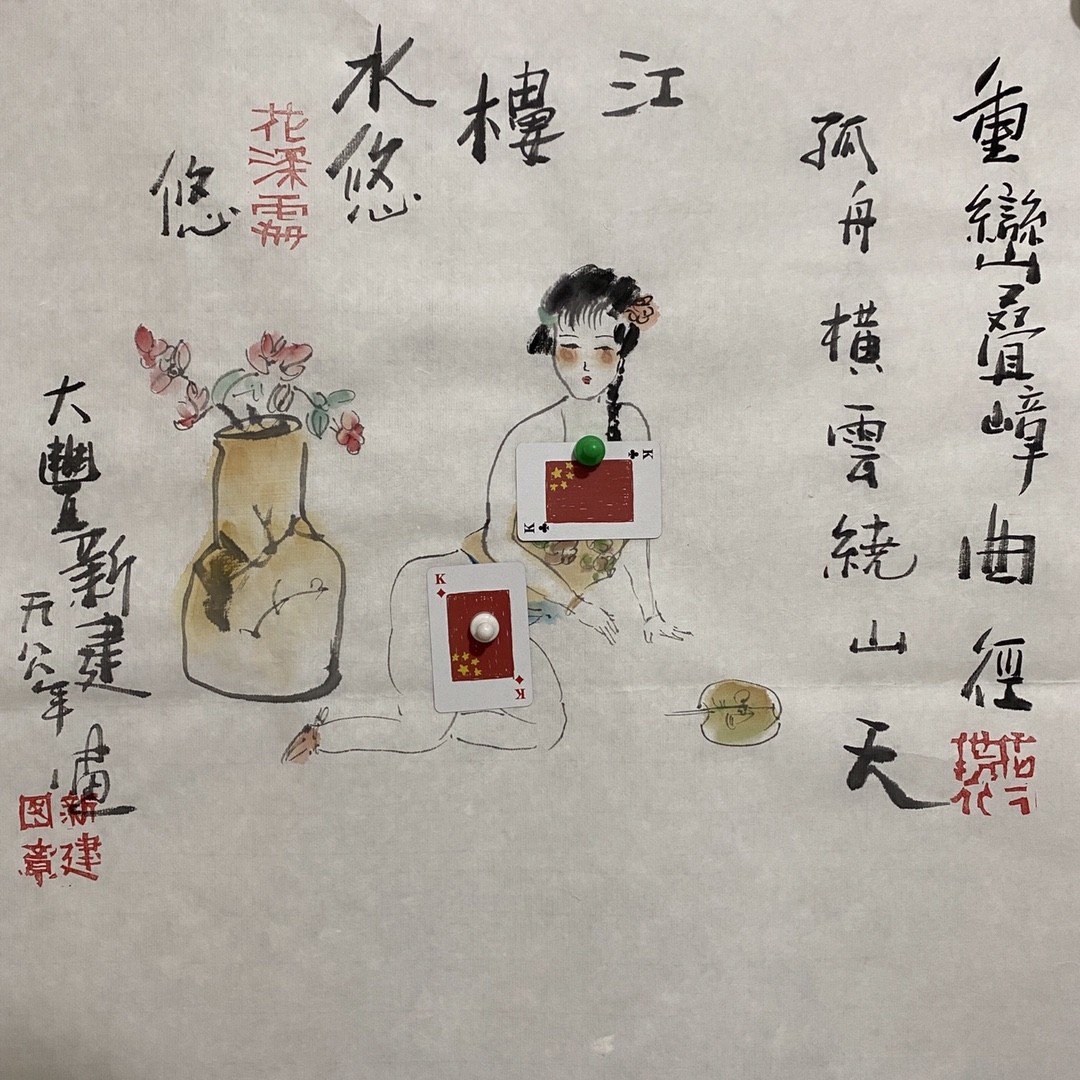 重巒疊嶂曲徑
孤舟橫雲繞山天
江
樓
水悠
悠
花深霧
大豐新建
畫
新建
图章
K
K
K
K